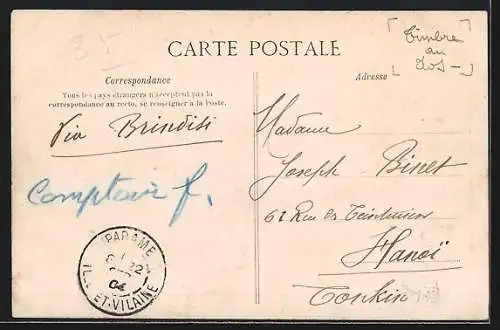 35
CARTE POSTALE
Timbre
au
Dos
Correspondance
Tous les pays étrangers n'acceptent pas la
correspondance au recto, se renseigner à la Poste.
Adresse
Via Brindisi
Comptoir f.
Madame
Joseph Binet
61 Rue des Teinturiers
Hanoï
Tonkin
PARAMÉ
04
ILLE-ET-VILAINE